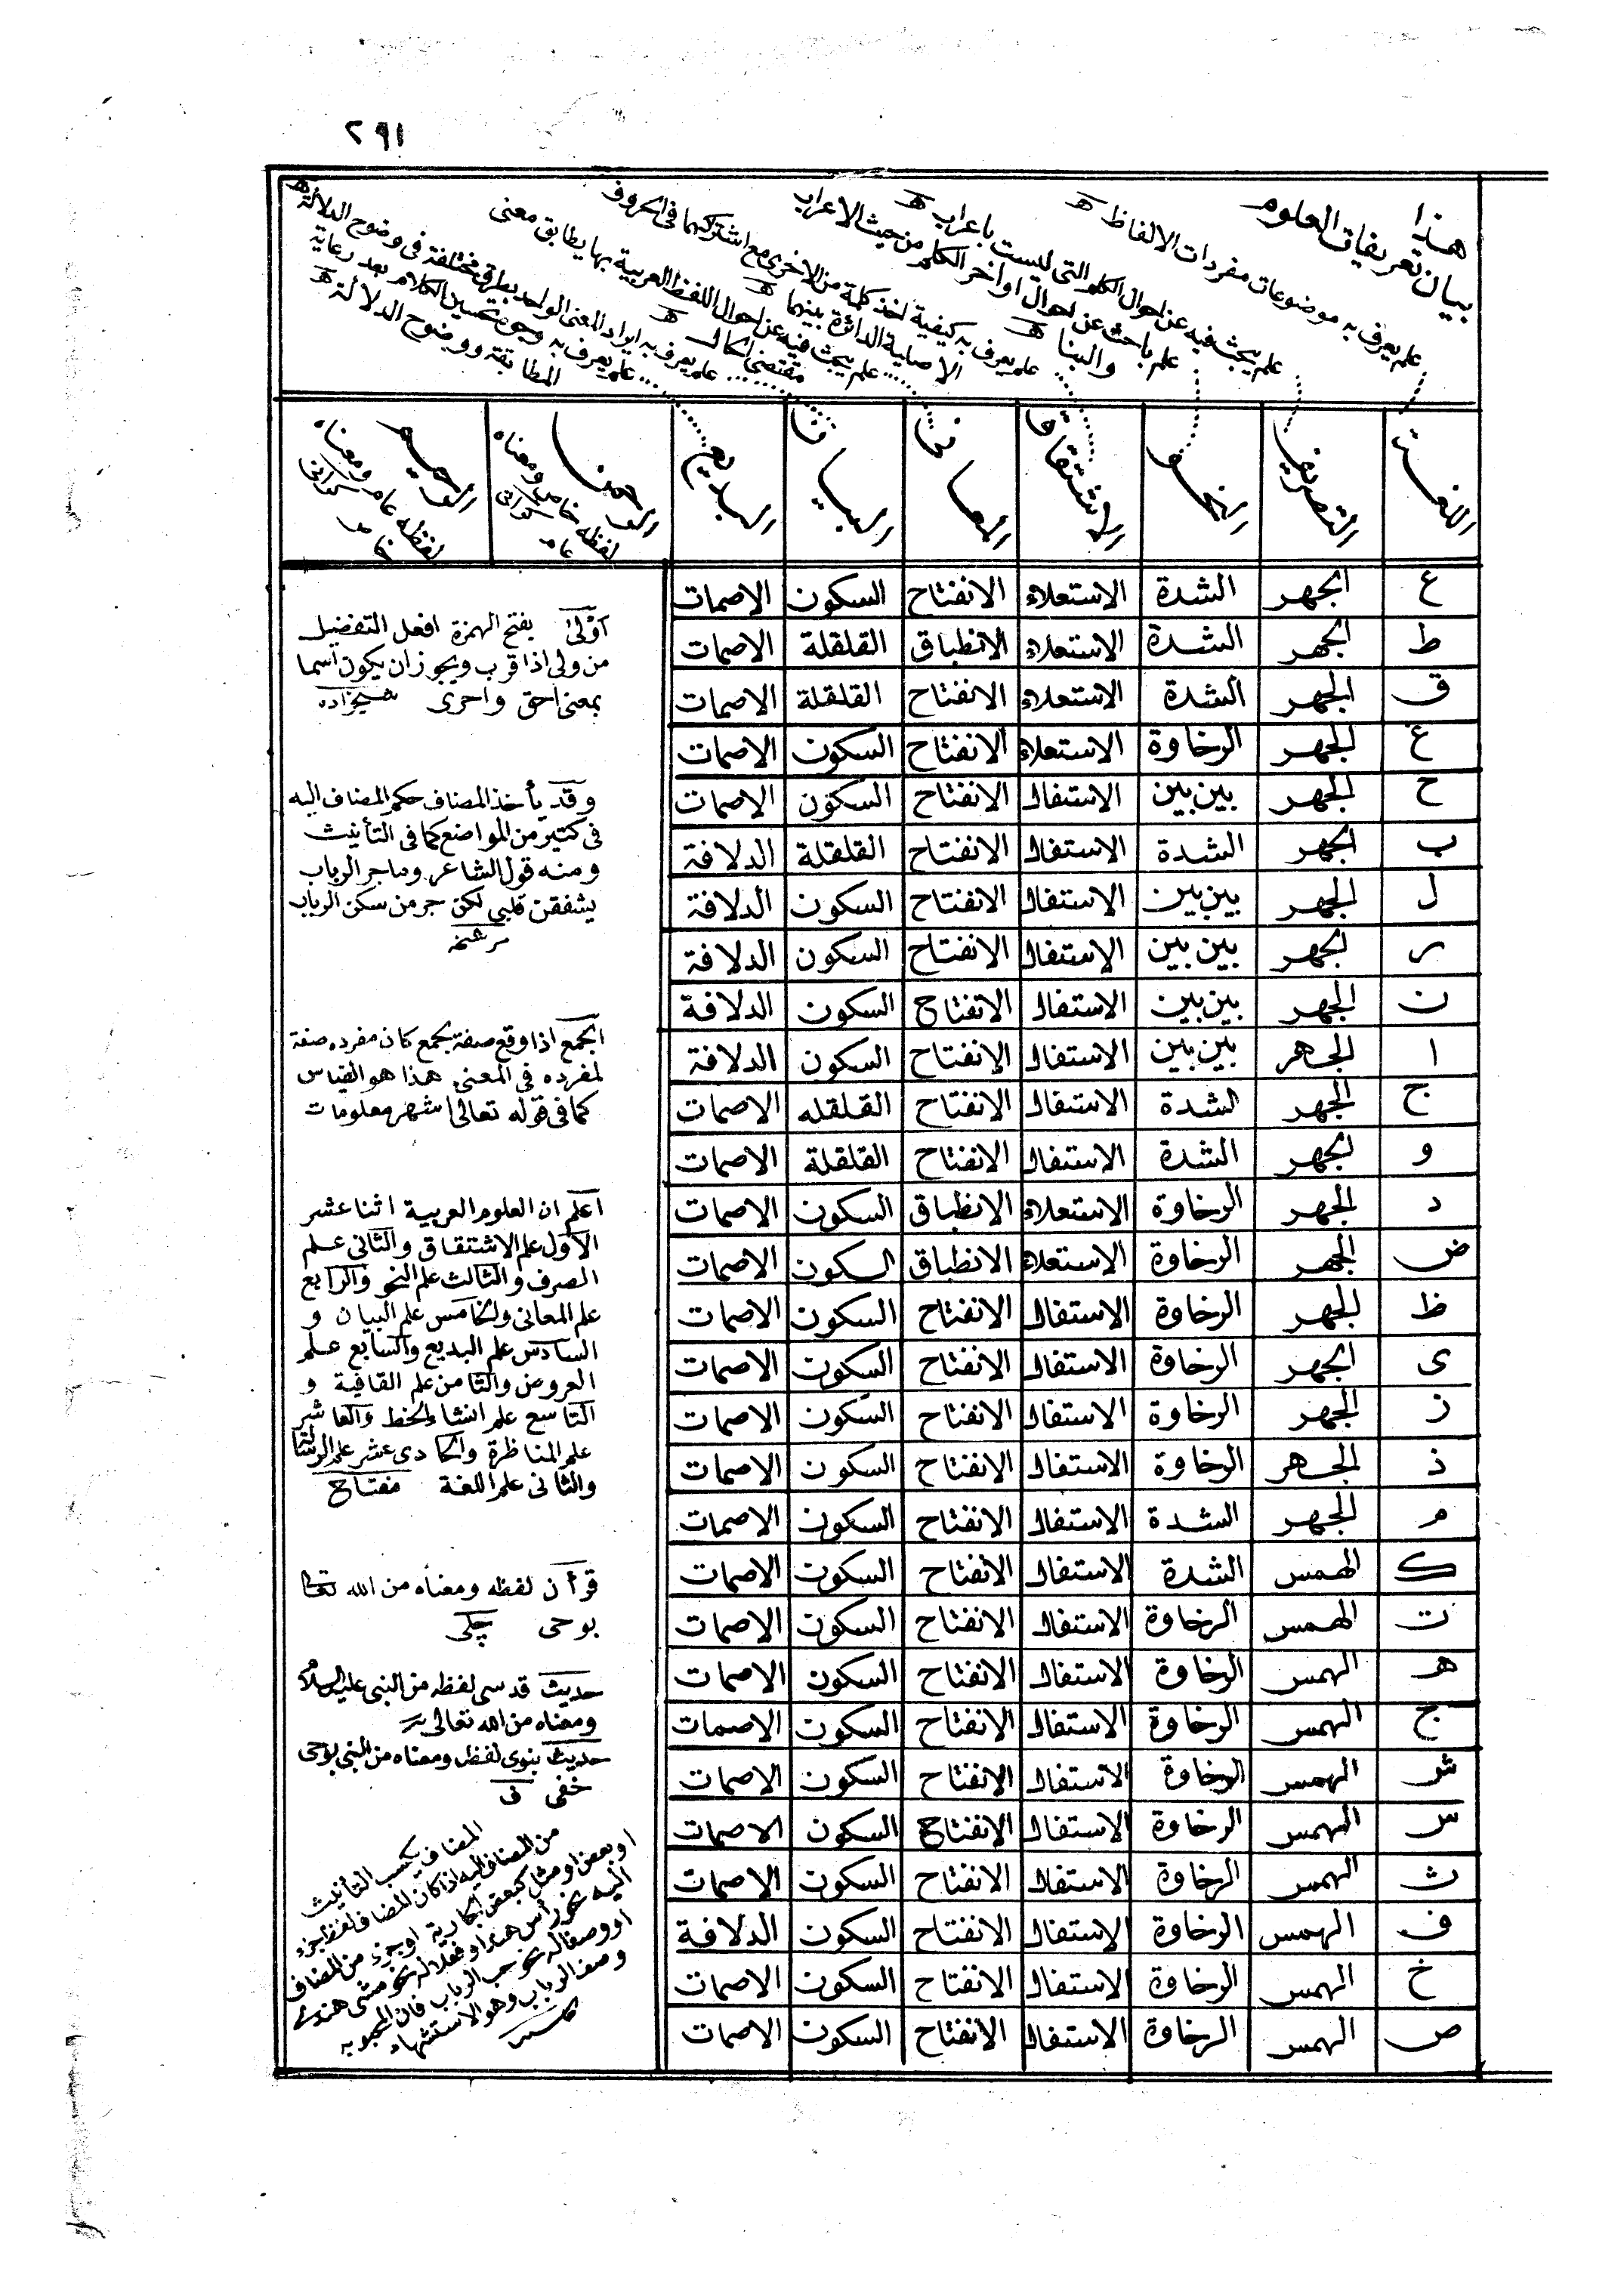 ٢٩١
هذا
بيان تعريفات العلوم
علم يعرف به موضوعات مفردات الالفاظ ه
علم يبحث فيه عن احوال الكلم التى ليست باعراب ه
علم باحث عن احوال اواخر الكلم من حيث الاعراب
والبنا ه
علم يعرف به كيفية اخذ كلمة من الاخرى مع اشتراكهما فى الحروف
الاصلية الدائرة بينهما ه
علم يبحث فيه عن احوال اللفظ العربية بها يطابق معنى
مقتضى الحال ه
علم يعرف به ايراد المعنى الواحد بطرق مختلفة فى وضوح الدلالة ه
علم يعرف به وجوه تحسين الكلام بعد رعاية
المطابقة ووضوح الدلالة ه
اللغت التصريف النحو الاشتقاق المعانى البيان البديع
الرحمن لفظه خاص ومعناه عام
الرحيم لفظه عام ومعناه خاص
ع الجهر الشدة الاستعلاء الانفتاح السكون الاصمات
ط الجهر الشدة الاستعلاء الانطباق القلقلة الاصمات
ق الجهر الشدة الاستعلاء الانفتاح القلقلة الاصمات
غ الجهر الرخاوة الاستعلاء الانفتاح السكون الاصمات
ح الجهر بين بين الاستفال الانفتاح السكون الاصمات
ب الجهر الشدة الاستفال الانفتاح القلقلة الدلاقة
ل الجهر بين بين الاستفال الانفتاح السكون الدلاقة
ر الجهر بين بين الاستفال الانفتاح السكون الدلاقة
ن الجهر بين بين الاستفال الانفتاح السكون الدلاقة
ا الجهر بين بين الاستفال الانفتاح السكون الدلاقة
ج الجهر الشدة الاستفال الانفتاح القلقله الاصمات
و الجهر الشدة الاستفال الانفتاح القلقلة الاصمات
د الجهر الرخاوة الاستعلاء الانطباق السكون الاصمات
ض الجهر الرخاوة الاستعلاء الانطباق السكون الاصمات
ظ الجهر الرخاوة الاستفال الانفتاح السكون الاصمات
ى الجهر الرخاوة الاستفال الانفتاح السكون الاصمات
ز الجهر الرخاوة الاستفال الانفتاح السكون الاصمات
ذ الجهر الرخاوة الاستفال الانفتاح السكون الاصمات
م الجهر الشدة الاستفال الانفتاح السكون الاصمات
ك الهمس الشدة الاستفال الانفتاح السكون الاصمات
ت الهمس الرخاوة الاستفال الانفتاح السكون الاصمات
ه الهمس الرخاوة الاستفال الانفتاح السكون الاصمات
ج الهمس الرخاوة الاستفال الانفتاح السكون الاصمات
ش الهمس الرخاوة الاستفال الانفتاح السكون الاصمات
س الهمس الرخاوة الاستفال الانفتاح السكون الاصمات
ث الهمس الرخاوة الاستفال الانفتاح السكون الاصمات
ف الهمس الرخاوة الاستفال الانفتاح السكون الدلاقة
خ الهمس الرخاوة الاستفال الانفتاح السكون الاصمات
ص الهمس الرخاوة الاستفال الانفتاح السكون الاصمات
اولى بفتح الهمزة افعل التفضيل
من ولى اذا قرب ويجوز ان يكون اسما
بمعنى احق واحرى شيخزاده
وقد يأخذ المضاف حكم المضاف اليه
فى كثير من المواضع كما فى التأنيث
ومنه قول الشاعر وما جر الرباب
يشفقن قلبى لكن جر من سكن الرباب
الجمع اذا وقع صفة بجمع كان مفرده صفة
لمفرده فى المعنى هذا هو القياس
كما فى قوله تعالى اشهر معلومات
اعلم ان العلوم العربية اثنا عشر
الاول علم الاشتقاق والثانى علم
الصرف والثالث علم النحو والرابع
علم المعانى والخامس علم البيان و
السادس علم البديع والسابع علم
العروض والثامن علم القافية و
التاسع علم انشاء الخط والعاشر
علم المناظرة والحادى عشر علم الرسالة
والثانى علم اللغة مفتاح
قرأن لفظه ومعناه من الله تعالى
بوحى چلى
حديث قدسى لفظه من النبى عليه السلام
ومعناه من الله تعالى
حديث بنوى لفظه ومعناه من النبى بوحى
خفى
المضاف يكسب التأنيث
من المضاف اليه اذا كان المضاف لفظ جزء
او بعض او مثل كبعض الجارية او جزء من المضاف
اليه نحو رأس هند او فعلا له نحو مشى هند
او وصفا له نحو حب الرباب فان المحبوبه
وصف الرباب وهو الاستشهاد